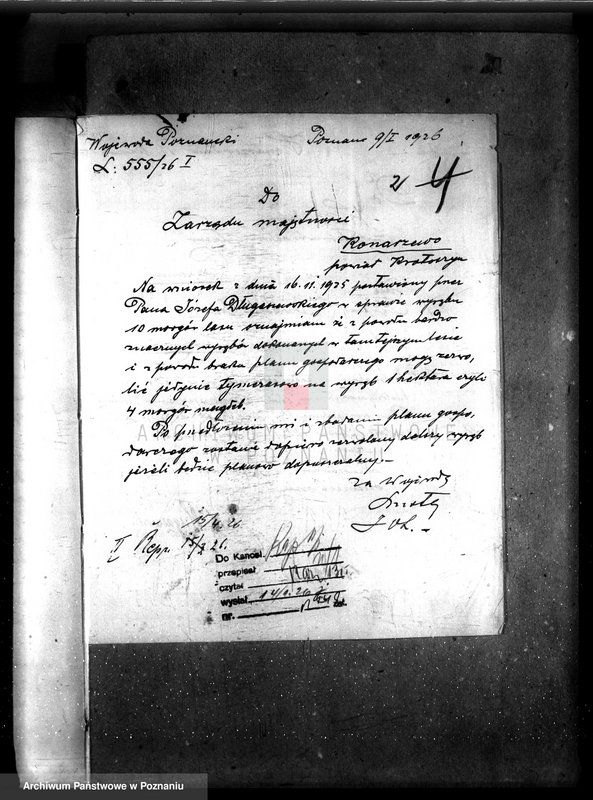 Wojewoda Poznański
Poznań 9/I 1926
L: 555/26 I
2/ 4
Do
Zarządu majętności
Konarzewo
powiat Krotoszyn
Na wniosek z dnia 16.11.1925 postawiony przez
Pana Józefa w sprawie wyrębu
10 morgów lasu oznajmiam że z powodu bardzo
znacznych wyrębów dokonanych w tamtejszym lesie
i z powodu braku planu gospodarczego mogę zezwo,
lić jedynie tymczasowo na wyrąb 1 hektara czyli
4 morgów magdeb.
Po przedłożeniu mi i zbadaniu planu gospo,
darczego zostanie dopiero zezwolony dalszy wyrąb
jeżeli będzie planowo dopuszczalny.-
Za Wojewodę
I O L. -
15/4. 26.
II Repr. 15/3 26.
Do Kancel.
przepisał
czytał
wysłał
nr. zał.
ARCHIWUM PAŃSTWOWE
W POZNANIU
Archiwum Państwowe w Poznaniu